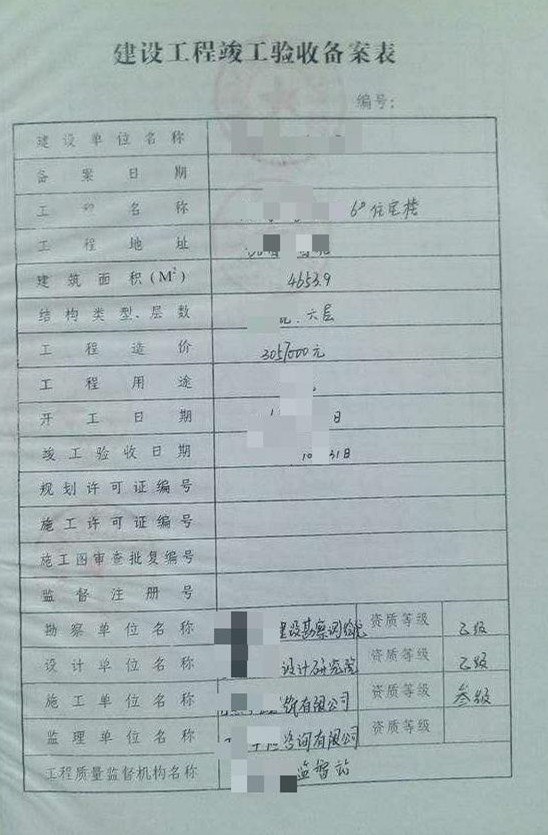 建设工程竣工验收备案表
编号:
建设单位名称
备案日期
工 名称 6# 住宅楼
工程地址
建筑面积(M²) 4653.9
结构类型、层数 . 六层
工程造价 3057000元
工程用途
开工日期 日
竣工验收日期 10 31日
规划许可证编号
施工许可证编号
施工图审查批复编号
监督注册号
勘察单位名称 建设勘察 院 资质等级 乙级
设计单位名称 设计研究院 资质等级 乙级
施工单位名称 有限公司 资质等级 叁级
监理单位名称 咨询有限公司 资质等级
工程质量监督机构名称 监督站